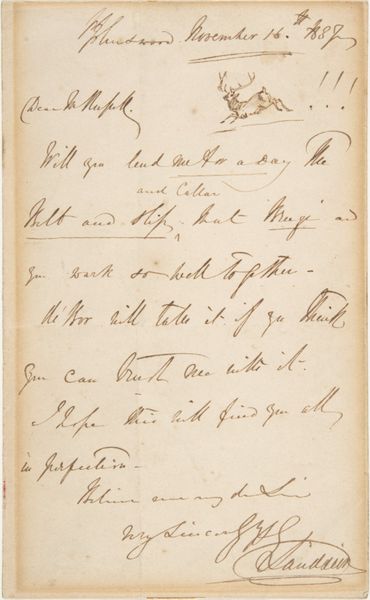 November 16th 1857
!!!
Dear Mr Russell.
Will you lend me for a day The
and Collar
Belt and slip, that and
you work so well together -
will take it if you Think
you can trust me with it.
I hope this will find you all
in perfection -
Believe me my dr Sir
very Sincerely
E Landseer